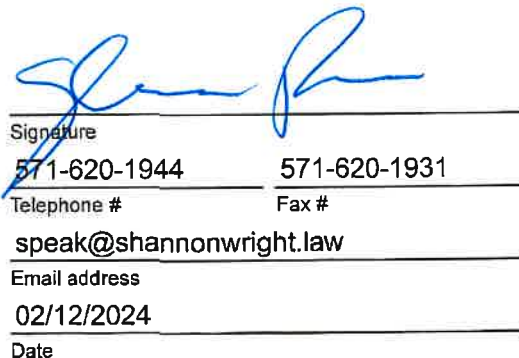 Signature
571-620-1944 571-620-1931
Telephone # Fax #
speak@shannonwright.law
Email address
02/12/2024
Date